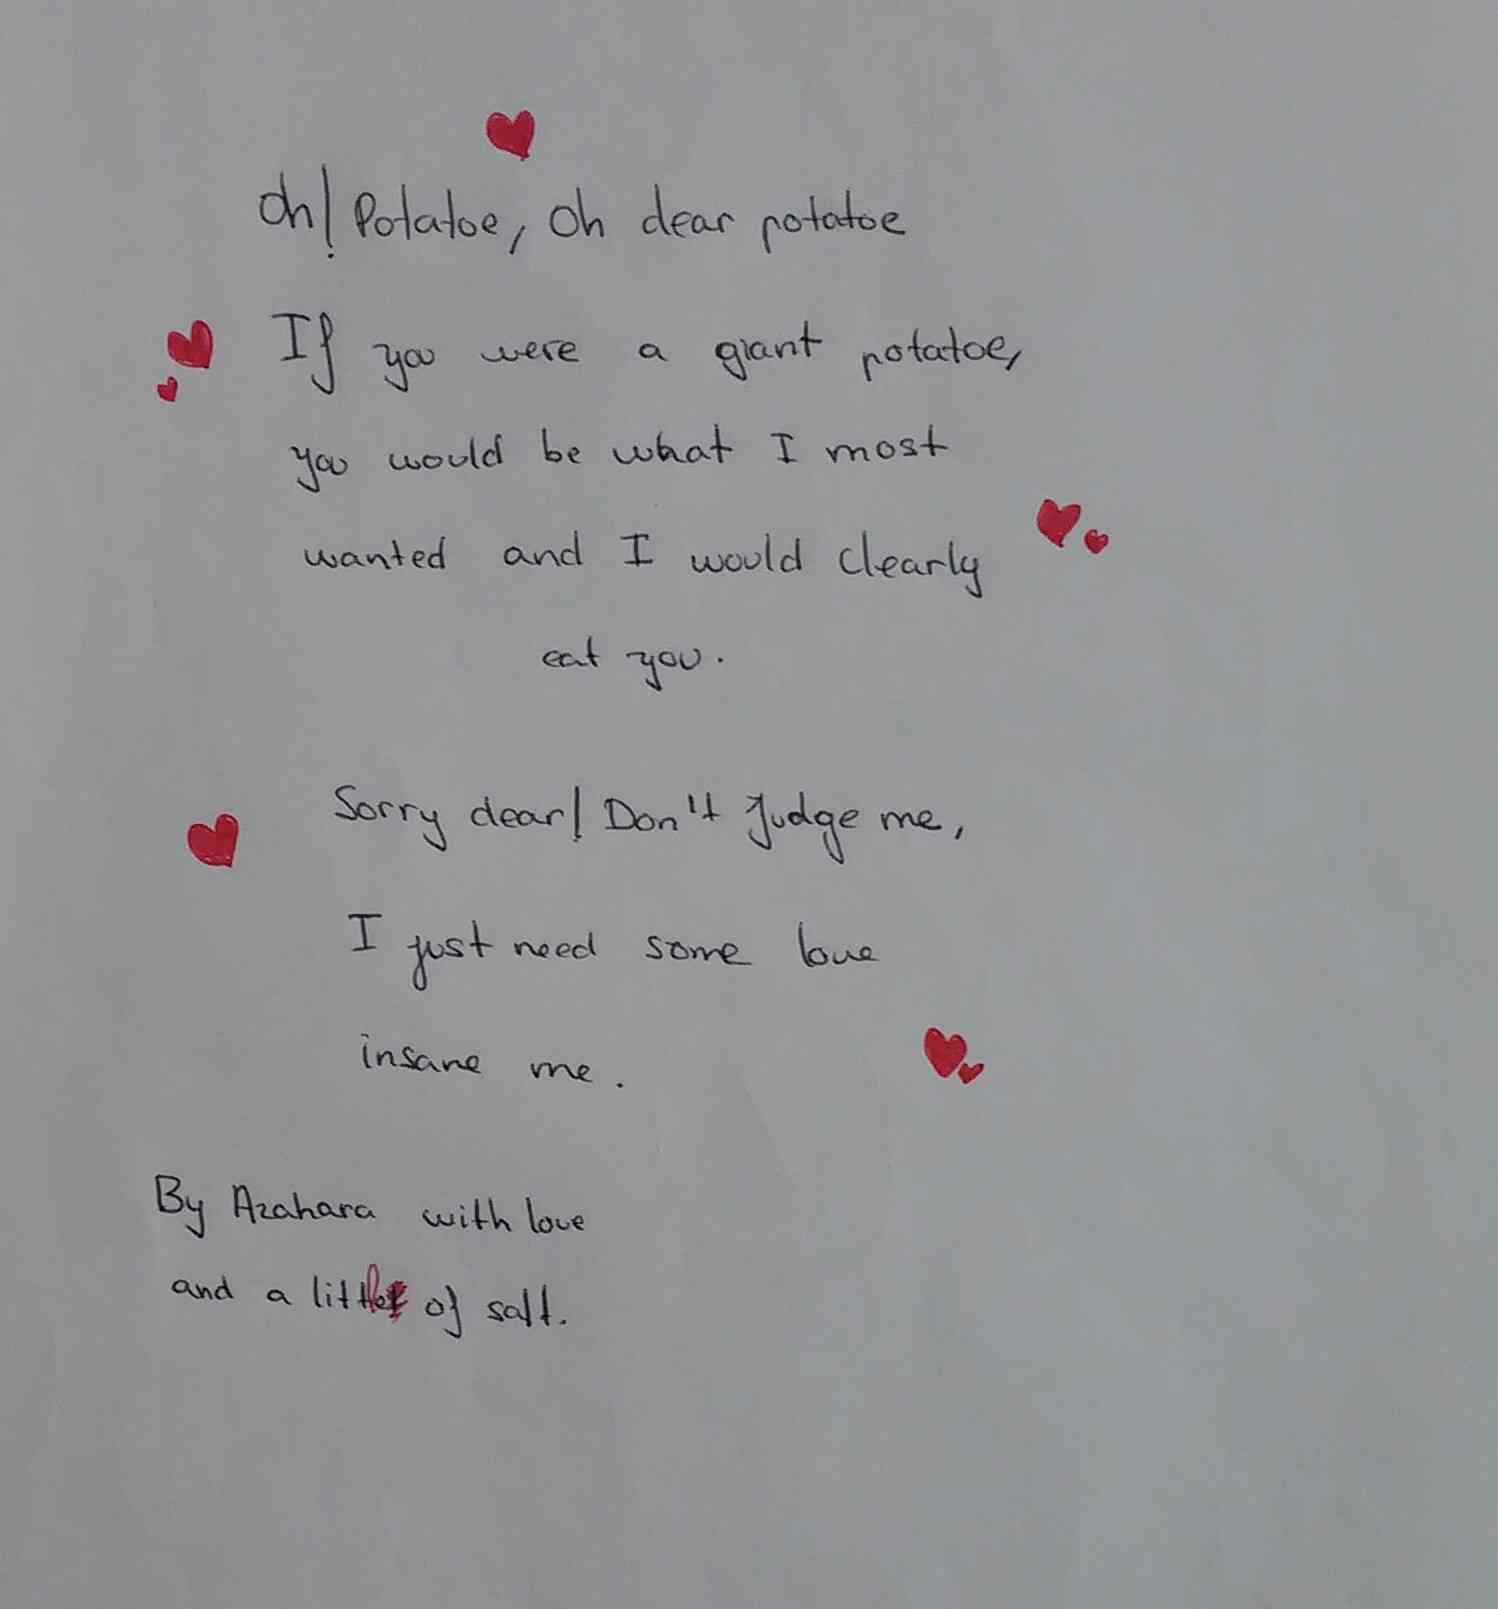 Oh! Potatoe, Oh dear potatoe
If you were a giant potatoe,
you would be what I most
wanted and I would clearly
eat you.
Sorry dear! Don't Judge me,
I just need some love
insane me.
By Azahara with love
and a little of salt.